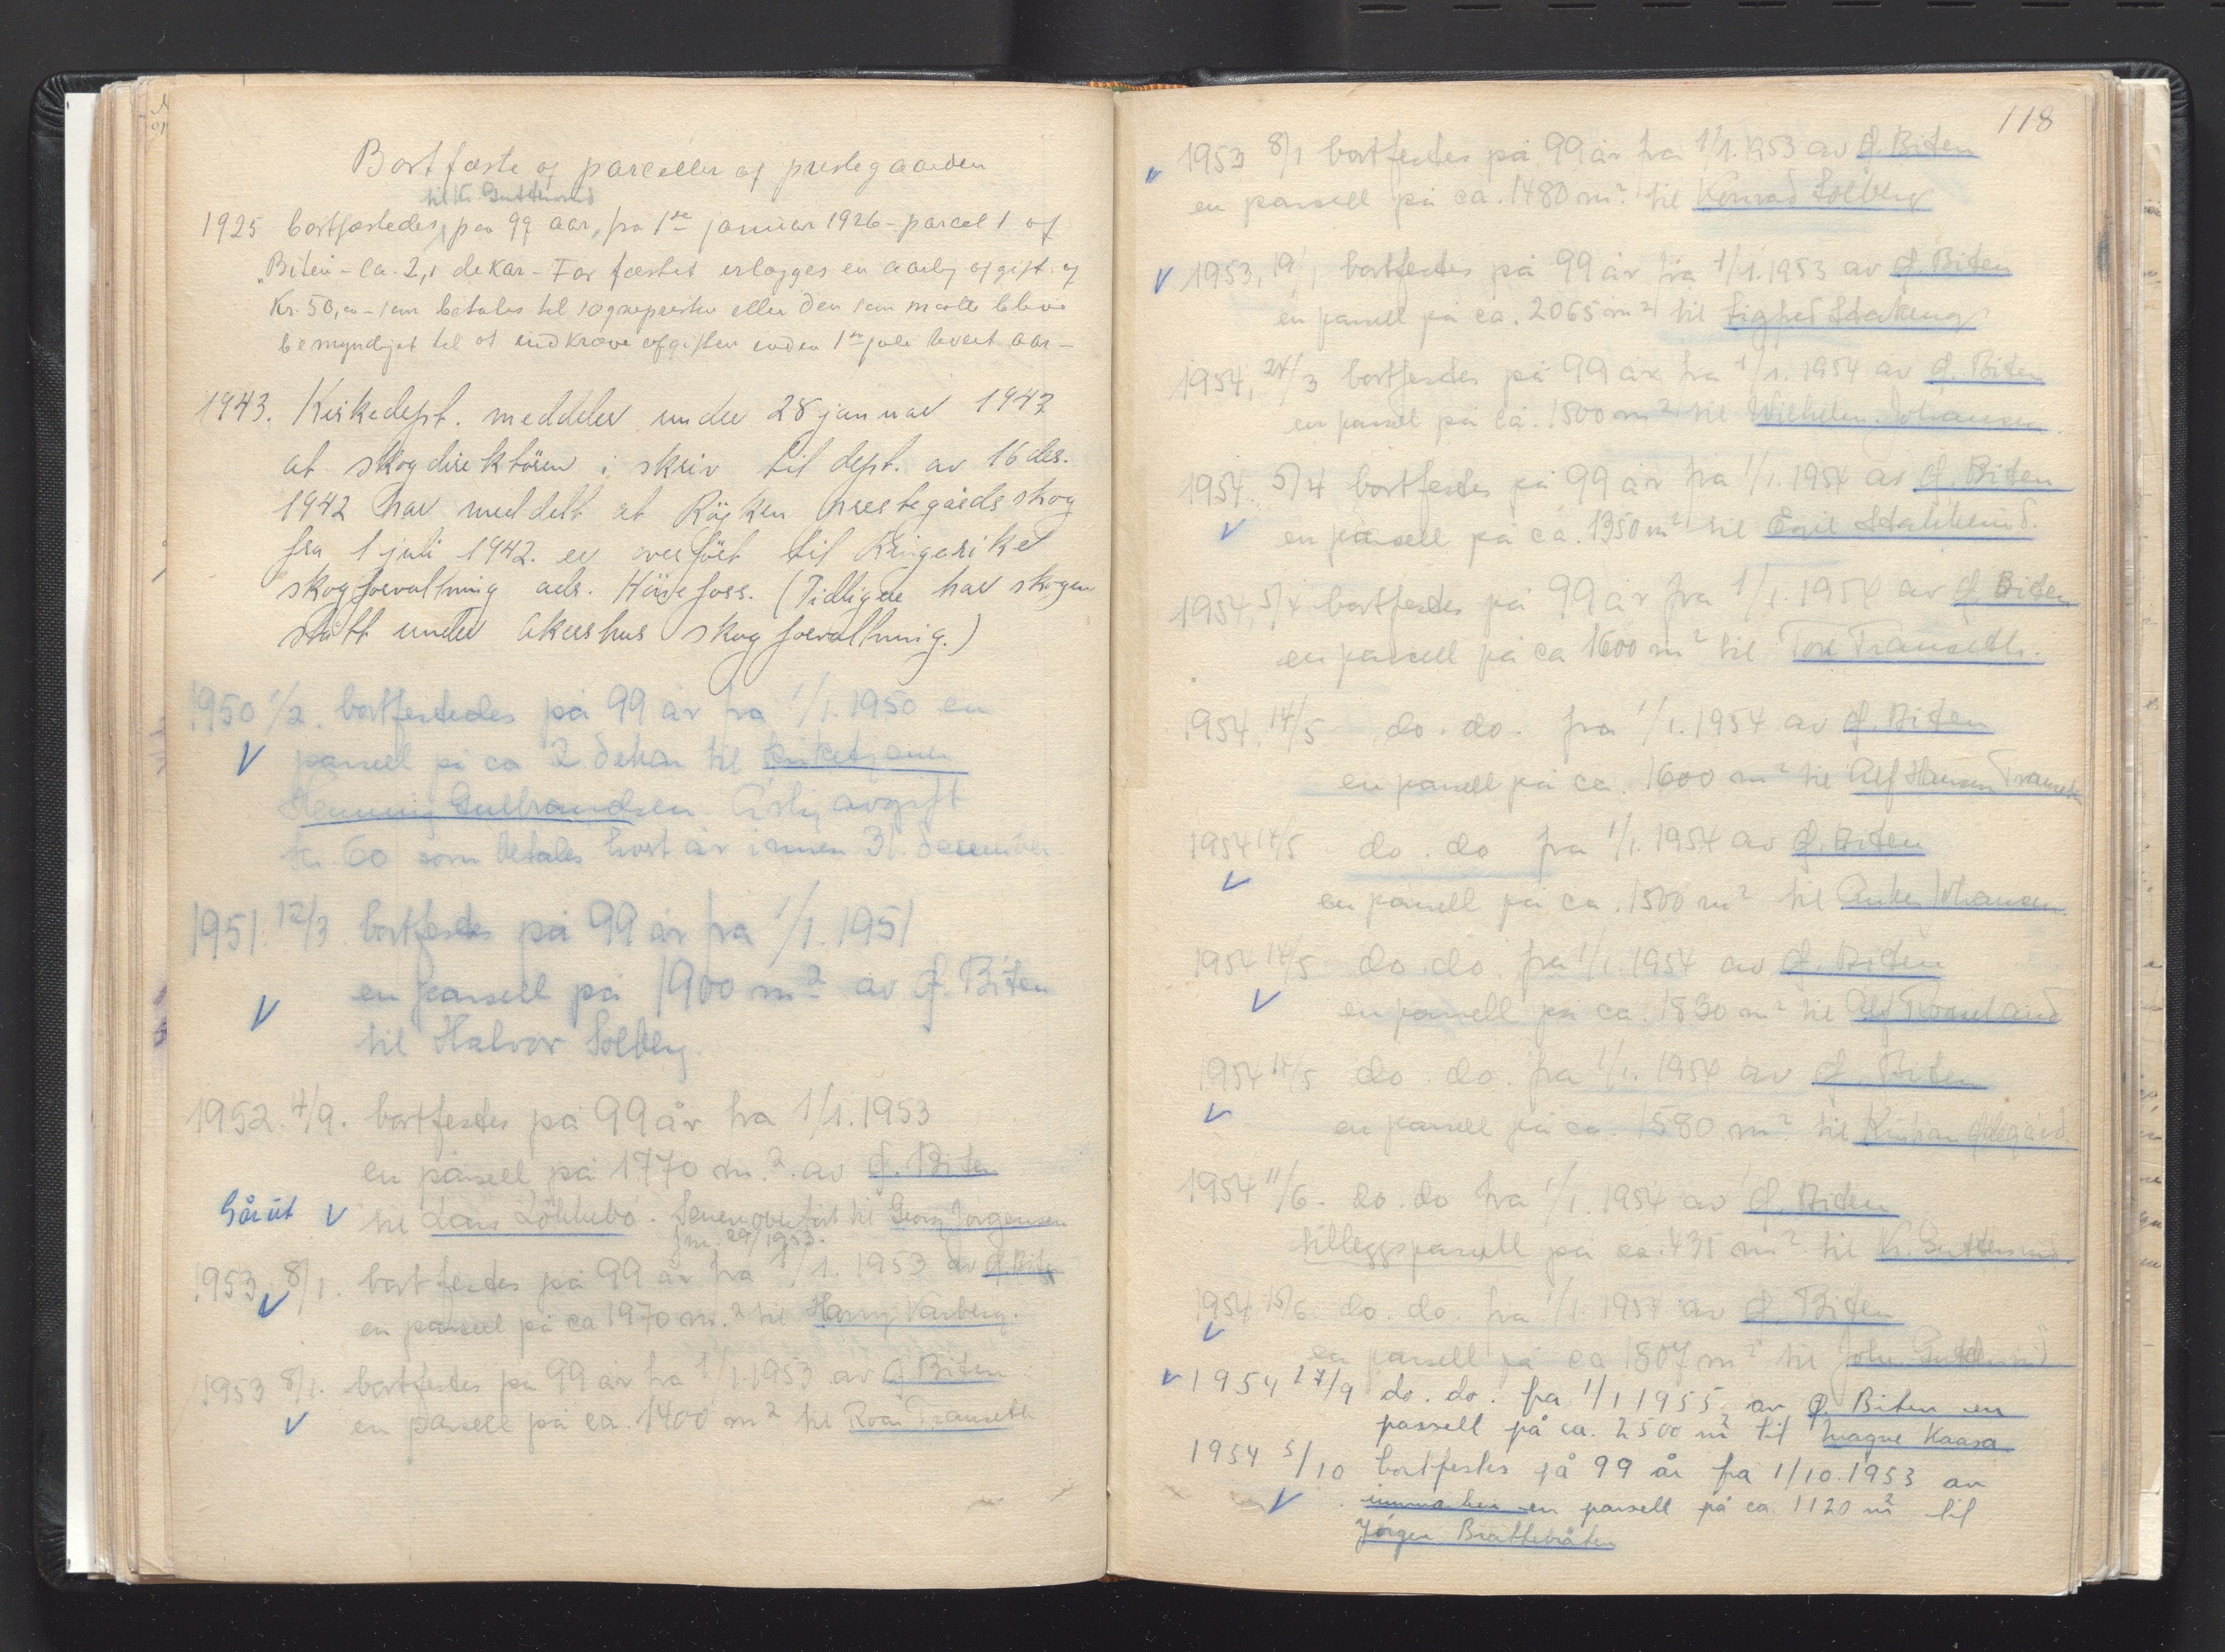 Bortfæste af parceller af prestegaarden
til K. Guttersrud
1925 bortfæstedes, paa 99 aar, fra 1ste januar 1926 - parcel 1 af
"Biten" - ca. 2,1 dekar - For fæstet erlægges en aarlig afgift af
Kr. 50,00 - som betales til sogneprесten eller den som maatte blive
bemyndiget til at indkræve afgiften inden 1ste juli hvert aar -
1943. Kirkedept. meddeler under 28 januar 1943
at skogdirektören i skriv til dept. av 16 des.
1942 har meddelt at Röyken prestegårds skog
fra 1 juli 1942. er overfört til Ringerike
skogforvaltning adr. Hönefoss. (Tidligere har skogen
stått under Akershus skogforvaltning.)
1950 1/2. bortfestedes på 99 år fra 1/1. 1950 en
V parsell på ca 2. dekar til kirketjener
Henning Gulbrandsen Årlig avgift
kr. 60 som betales hvert år innen 31. december
1951. 12/3. bortfestes på 99 år fra 1/1. 1951
en parsell på 1900 m² av f. Biten
V til Halvor Solberg.
1952. 4/9. bortfestes på 99 år fra 1/1. 1953
en parsell på 1770 m². av f. Biten
Går ut V til Lars Lökkebö. Senere overfört til Georg Jörgensen
1953. 8/1. bortfestes på 99 år fra 1/1. 1953 av f. Biten
V en parsell på ca 1970 m.² til Harry Varberg.
1953 8/1. bortfestes på 99 år fra 1/1. 1953 av f. Biten
V en parsell på ca. 1400 m² til Roar Transeth
118
1953 8/1 bortfestes på 99 år fra 1/1. 1953 av f. Biten
V en parsell på ca. 1480 m². til Konrad Solberg
V 1953, 19/1 bortfestes på 99 år fra 1/1. 1953 av f. Biten
en parsell på ca. 2065 m² til Sigfred
1954, 24/3 bortfestes på 99 år fra 1/1. 1954 av f. Biten
en parsell på ca. 1500 m² til Wilhelm Johansen.
1954. 5/4 bortfestes på 99 år fra 1/1. 1954 av f. Biten
V en parsell på ca. 1350 m² til Egil
1954, 5/4 bortfestes på 99 år fra 1/1. 1954 av f. Biten
en parsell på ca 1600 m² til Tore Transeth.
1954. 14/5 do. do. fra 1/1. 1954 av f. Biten
en parsell på ca. 1600 m² til Alf Hansen Transeth
1954 14/5 do. do fra 1/1. 1954 av f. Biten
V en parsell på ca. 1500 m² til Anker Johansen.
1954 14/5 do. do. fra 1/1. 1954 av f. Biten
V en parsell på ca. 1830 m² til Alf
1954 14/5 do. do. fra 1/1. 1954 av f. Biten
V en parsell på ca. 1580 m² til Kristian Ödegård
1954 11/6. do. do fra 1/1. 1954 av f. Biten
tilleggsparsell på ca. 435 m² til K. Guttersrud.
1954 15/6. do. do. fra 1/1. 1954 av f. Biten
V en parsell på ca 1807 m² til John Guttersrud
V 1954 17/9 do. do. fra 1/1 1955 av f. Biten en
parsell på ca. 2500 m² til Magne Kaasa.
1954 5/10 bortfestes på 99 år fra 1/10. 1953 av
V en parsell på ca. 1120 m² til
Jörgen Bratteråten